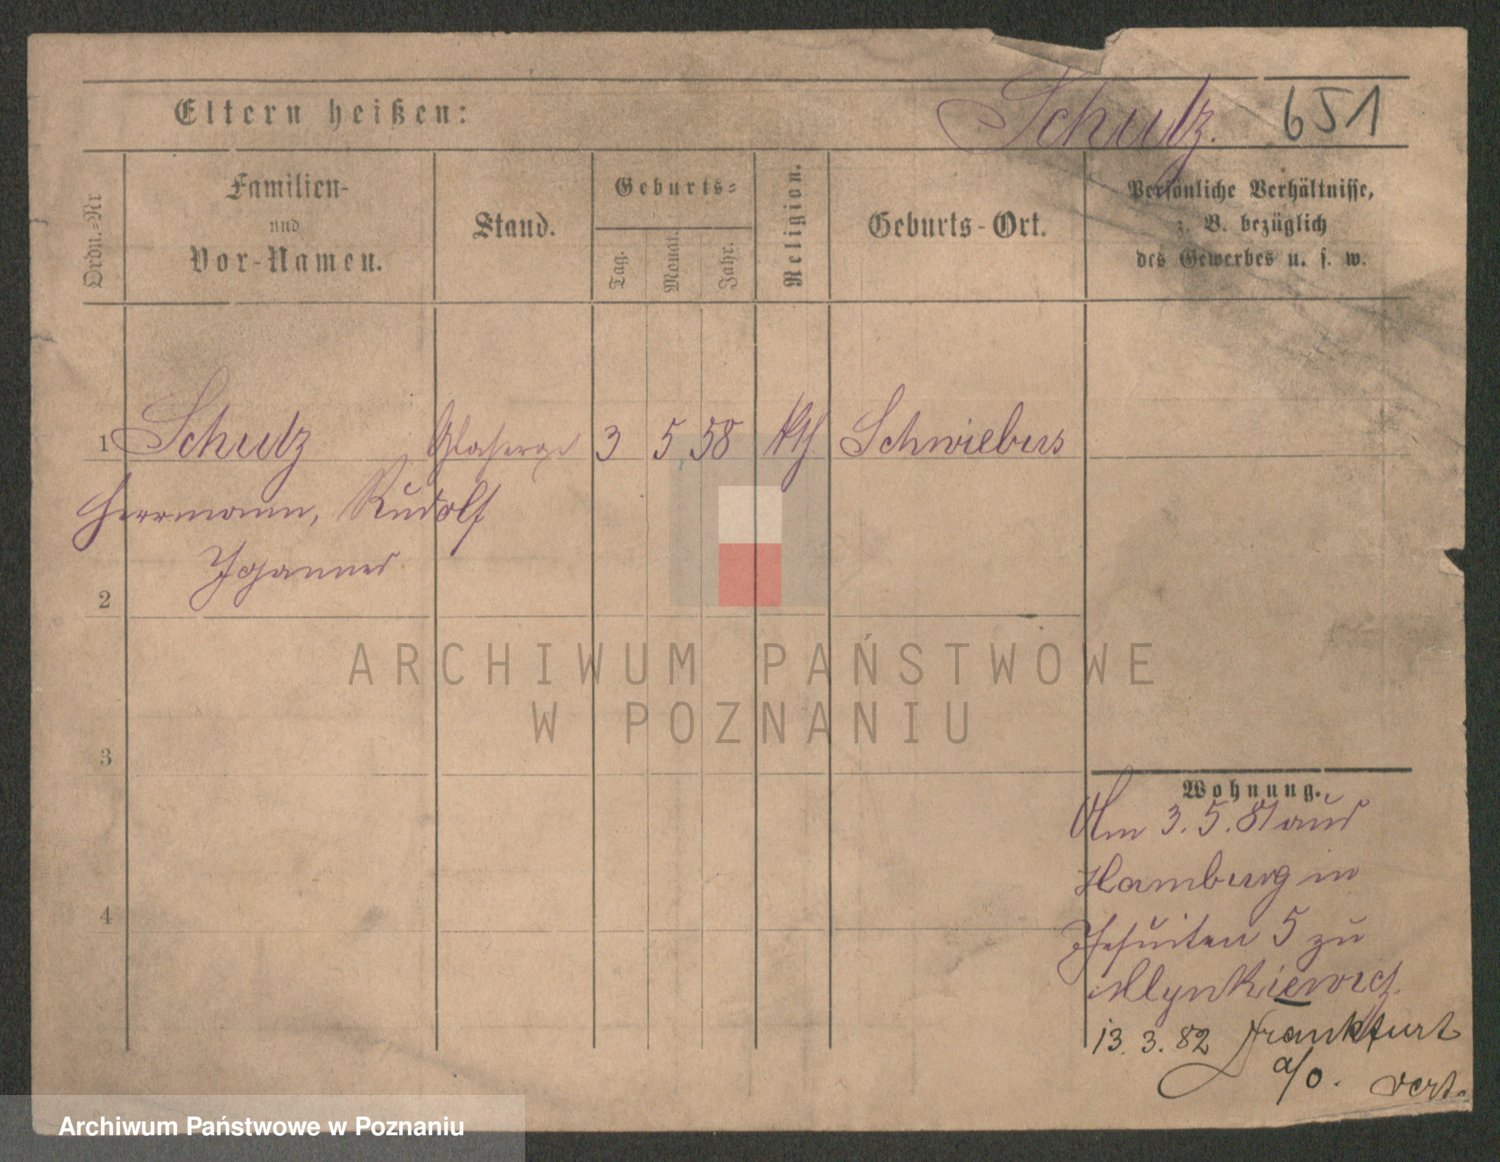 Schulz. 651
Eltern heißen:
Ordn.-Nr
Familien-
und
Vor-Namen.
Stand.
Geburts-
Tag.
Monat.
Jahr.
Religion.
Geburts-Ort.
Persönliche Verhältnisse,
z. B. bezüglich
des Gewerbes u. s. w.
1 Schulz 3 5 58 kth Schwiebus
Herrmann, Rudolf
Johannes
2
3
4
Wohnung.
Am 3. 5. 81 aus
Hamburg in
Jesuiten 5 zu
Mlynkiewicz.
13. 3. 82 Frankfurt
a/O. verz.
ARCHIWUM PAŃSTWOWE
W POZNANIU
Archiwum Państwowe w Poznaniu